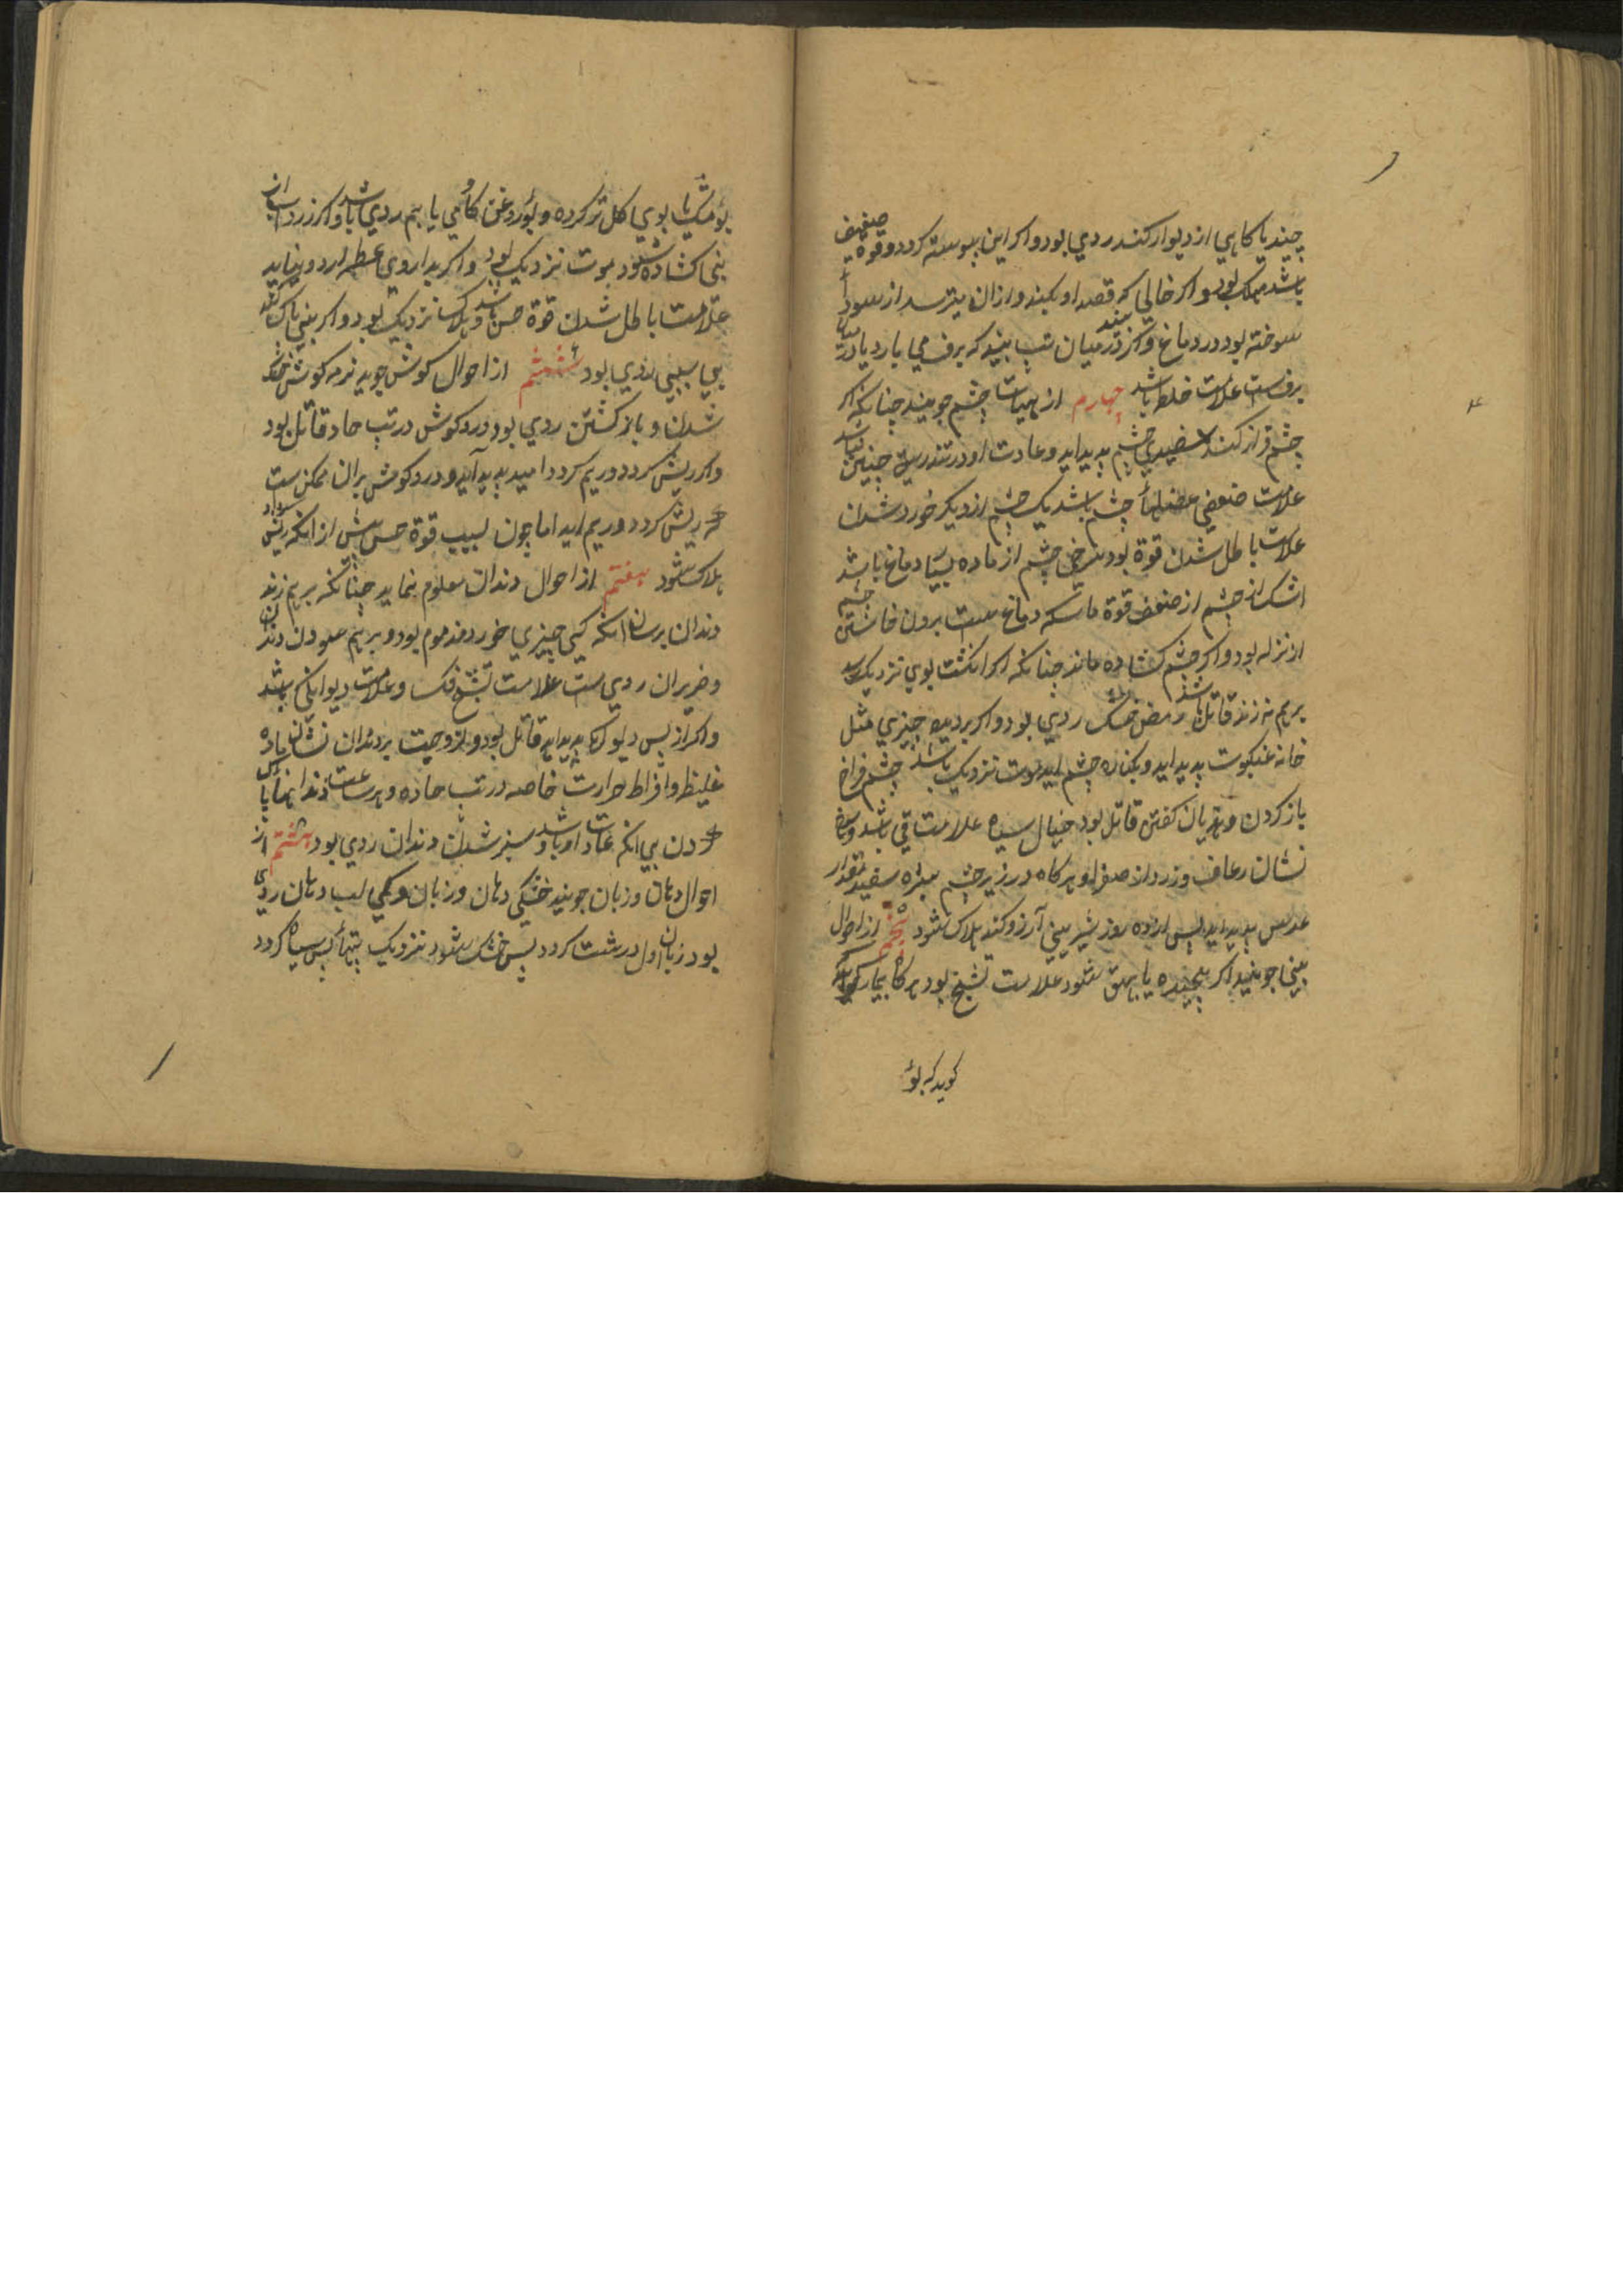 چیند یا کاهی از دیوار کند ردی بود و اکر این پیوسته کردد و قوة ضعیف
باشد مهلک بود و اکر خالی که قصد او کیند و ازان میترسد از سودا
سوخته بود در دماغ و کر در میان تب بیند که برف می بارد یا در میان
برفست علامت خلط باشد چهارم از هیات چشم جویند چنانکه اکر
چشم فراز کند سفیدی چشم پدید اید و عادت او در تندرستی چنین نباشد
علامت ضعیفی عضلهأ چشم باشد یک چشم از دیکر خورد شدن
علامت باطل شدن قوة بود سرخی چشم از ماده بسیار دماغ باشد
اشک از چشم از ضعف قوة ماسکه دماغ ست برون خاستن چشم
از نزله بود و اکر چشم کشاده ماند چنانکه اکر انکشت بوی نزدیک رسد
برهم نه زند قاتل باشد رمض خشک ردی بود و اکر بر دیده چیزی مثل
خانه عنکبوت پدید اید و بکناره چشم اید بموت نزدیک باشد چشم فراخ
باز کردن و هذیان کفتن قاتل بود خیال سیاه علامت قی باشد و سرخ
نشان رعاف و زرد از صفرا و هرکاه در زیر چشم بثره سفید بمقدار
عدس پدید اید پس از ده روز شیرینی آرزو کند هلاک شود پنجم از احوال
بینی جویند اکر پیچیده یا پهن شود علامت تشنج بود هرکاه بیمار کوید
کوید که بوٴ
بوٴ مشک یا بوی کل تر کرده و بوٴ روغن کاوٴ می یابم ردی باشد و اکر زرداب از
بینی کشاده شود بموت نزدیک بود و اکر بداروی عطسه ارد و نیاید
علامت باطل شدن قوة حس باشد و هلاک نزدیک بود و اکر بینی پاک کند
بی سببی ردی بود ششم از احوال کوش جوید نرمه کوش خشک
شدن و باز کشتن ردی بود درد کوش در تب حاد قاتل بود
و اکر ریش کردد و ریم کردد امید پدید آید و درد کوش پیران ممکن ست
که ریش کردد و ریم اید اما جوان بسبب قوة حس پیش از انکه ریش شود
هلاک شود هفتم از احوال دندان معلوم نماید چنانکه برهم زند
دندان برسان انکه کسی چیزی خورد مذموم بود و برهم سودن دندان
و خریران ردی ست علامت تشنج فک و علامت دیوانکی باشد
و اکر از پس دیوانکی پدید اید قاتل بود و لزوجیت بر دندان نشان ماده
غلیظ و افراط حرارت خاصه در تب حاده و هر ساعت دندانها پاک
کردن بی انکه عادت او باشد و سبز شدن دندان ردی بود هشتم از
احوال دهان و زبان جویند خشکی دهان و زبان و کجی لب دهان ردی
بود زبان اول درشت کردد پس خشک شود نزدیک بتهاٴ پس سیاه کردد